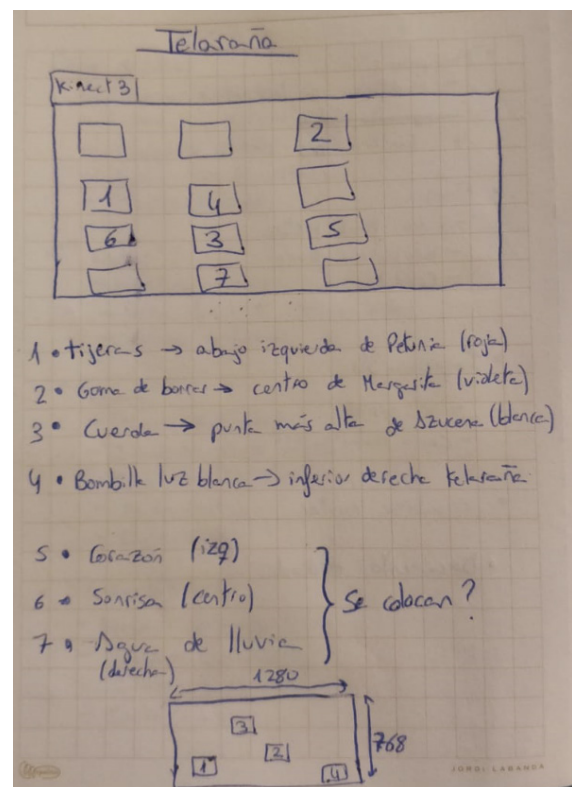 Telaraña
Kinect 3
2
1 4
6 3 5
7
1 • tijeras → abajo izquierda de Petunia (roja)
2 • Goma de borrar → centro de Margarita (violeta)
3 • Cuerda → punta más alta de Azucena (blanca)
4 • Bombilla luz blanca → inferior derecha telaraña
5 • Corazón (izq)
6 • Sonrisa (centro)
Se colocan?
7 • Agua de lluvia
(derecha)
1280
3
2
768
1
4
JORDI LABANDA